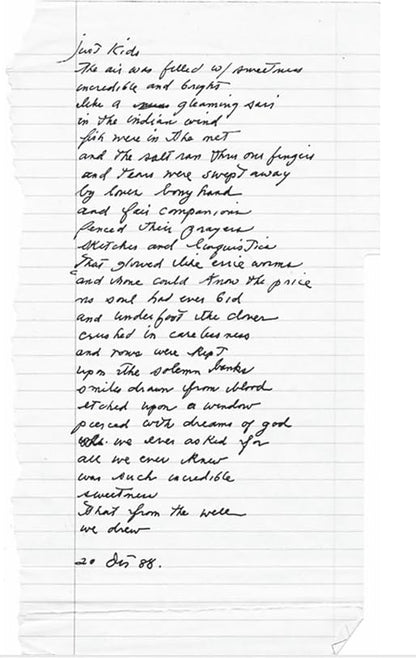 just Kids
the air was filled w/ sweetness
incredible and bright
like a gleaming sari
in the indian wind
fish were in the net
and the salt ran thru our fingers
and tears were swept away
by lover bony hand
and fair companions
fenced their prayers
sketches and linguistics
that glowed like eerie worms
and none could know the price
no soul had ever bid
and underfoot the clover
crushed in carelessness
and vows were kept
upon the solemn banks
smiles drawn from blood
etched upon a window
pierced with dreams of god
we ever asked for
all we ever knew
was such incredible
sweetness
that from the well
we drew
20 88.